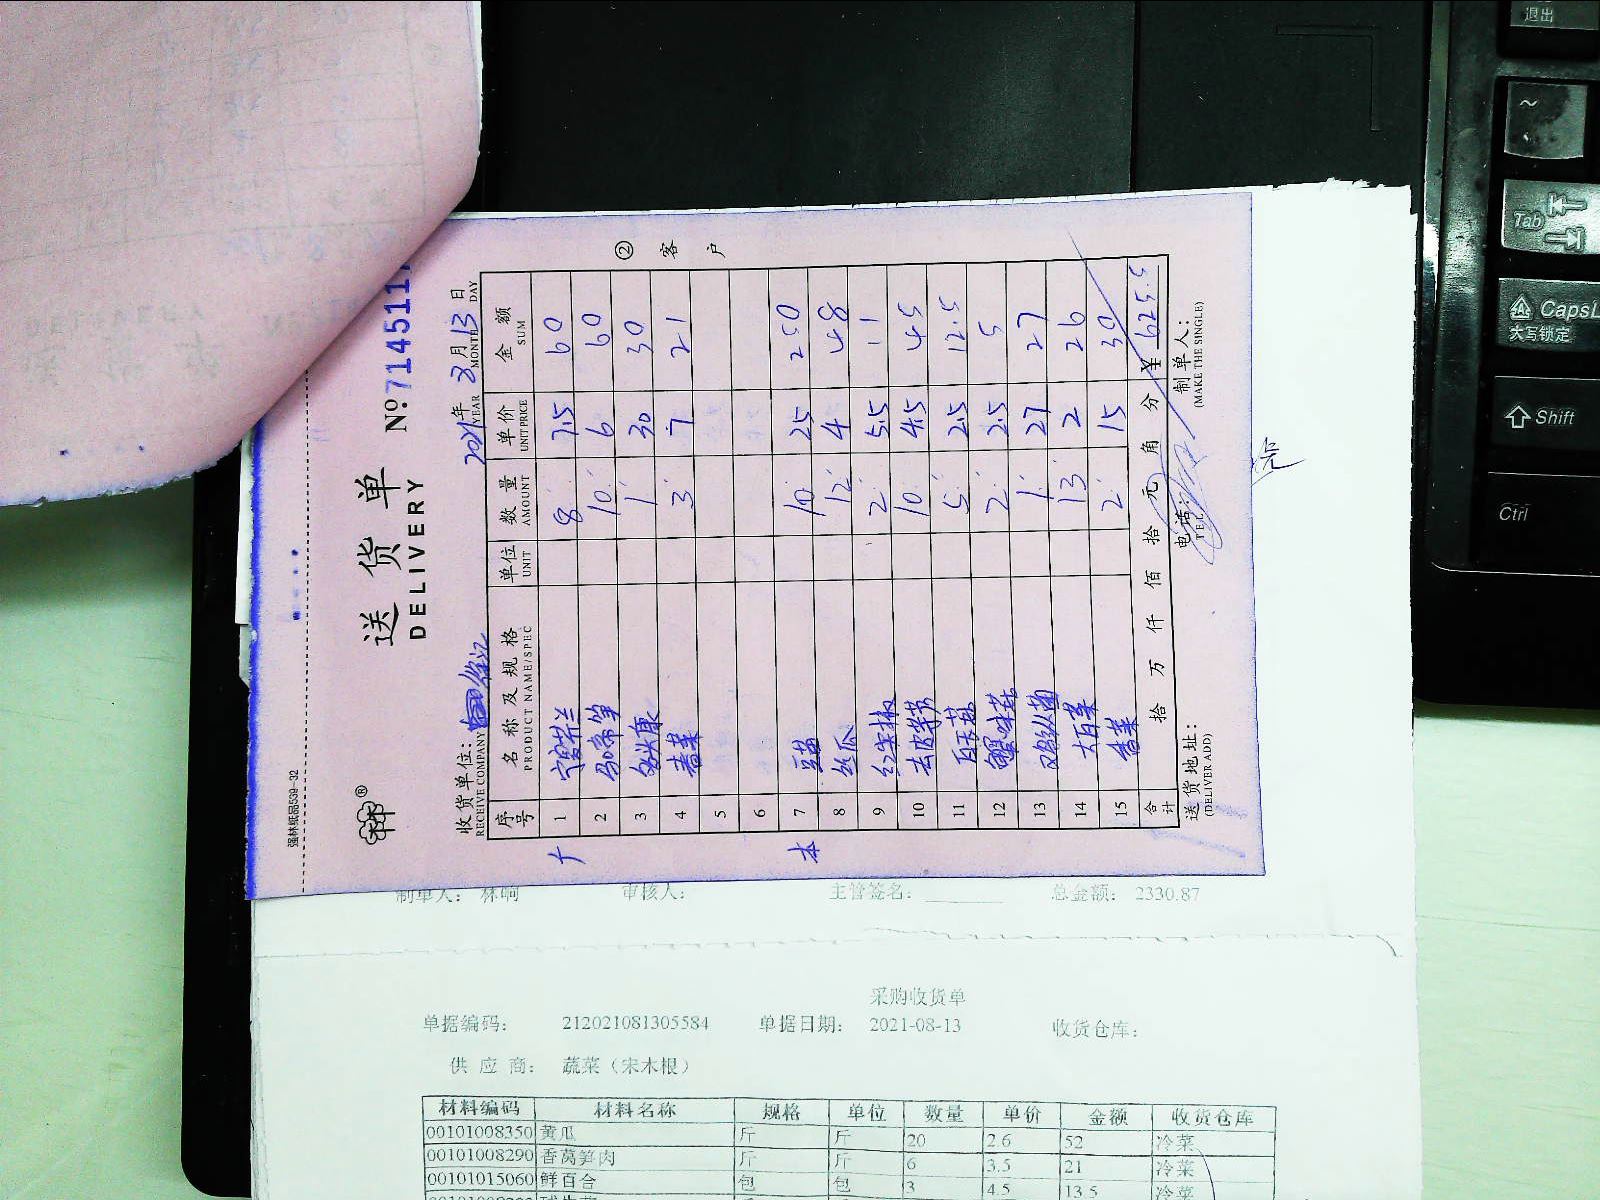 强林纸品539-32
送货单
DELIVERY
№ 7145117
② 客户
收货单位:
RECEIVE COMPANY
2021年 8月13日
YEAR MONTH DAY
序号 名称及规格 单位 数量 单价 金额
PRODUCT NAME/SPEC UNIT AMOUNT UNIT PRICE SUM
1 8 7.5 60
2 马蹄笋 10 6 60
3 1 30 30
4 香菜 3 7 21
5
6
本
7 豆苗 10 25 250
8 丝瓜 12 4 48
9 红尖椒 2 5.5 11
10 去皮芋艿 10 4.5 45
11 白玉菇 5 2.5 12.5
12 蟹味菇 2 2.5 5
13 鸡纵菌 1 27 27
14 大白菜 13 2 26
15 香菜 2 15 30
合计 拾 万 仟 佰 拾 元 角 分 ¥ 625.5
送货地址: 电话: 制单人:
(DELIVER ADD) TEL (MAKE THE SINGLE)
制单人: 林响 审核人: 主管签名: 总金额: 2330.87
采购收货单
单据编码: 212021081305584 单据日期: 2021-08-13 收货仓库:
供应商: 蔬菜(宋木根)
材料编码 材料名称 规格 单位 数量 单价 金额 收货仓库
00101008350 黄瓜 斤 斤 20 2.6 52 冷菜
00101008290 香莴笋肉 斤 斤 6 3.5 21 冷菜
00101015060 鲜百合 包 包 3 4.5 13.5 冷菜
退出
~
Tab
CapsL
大写锁定
Shift
Ctrl